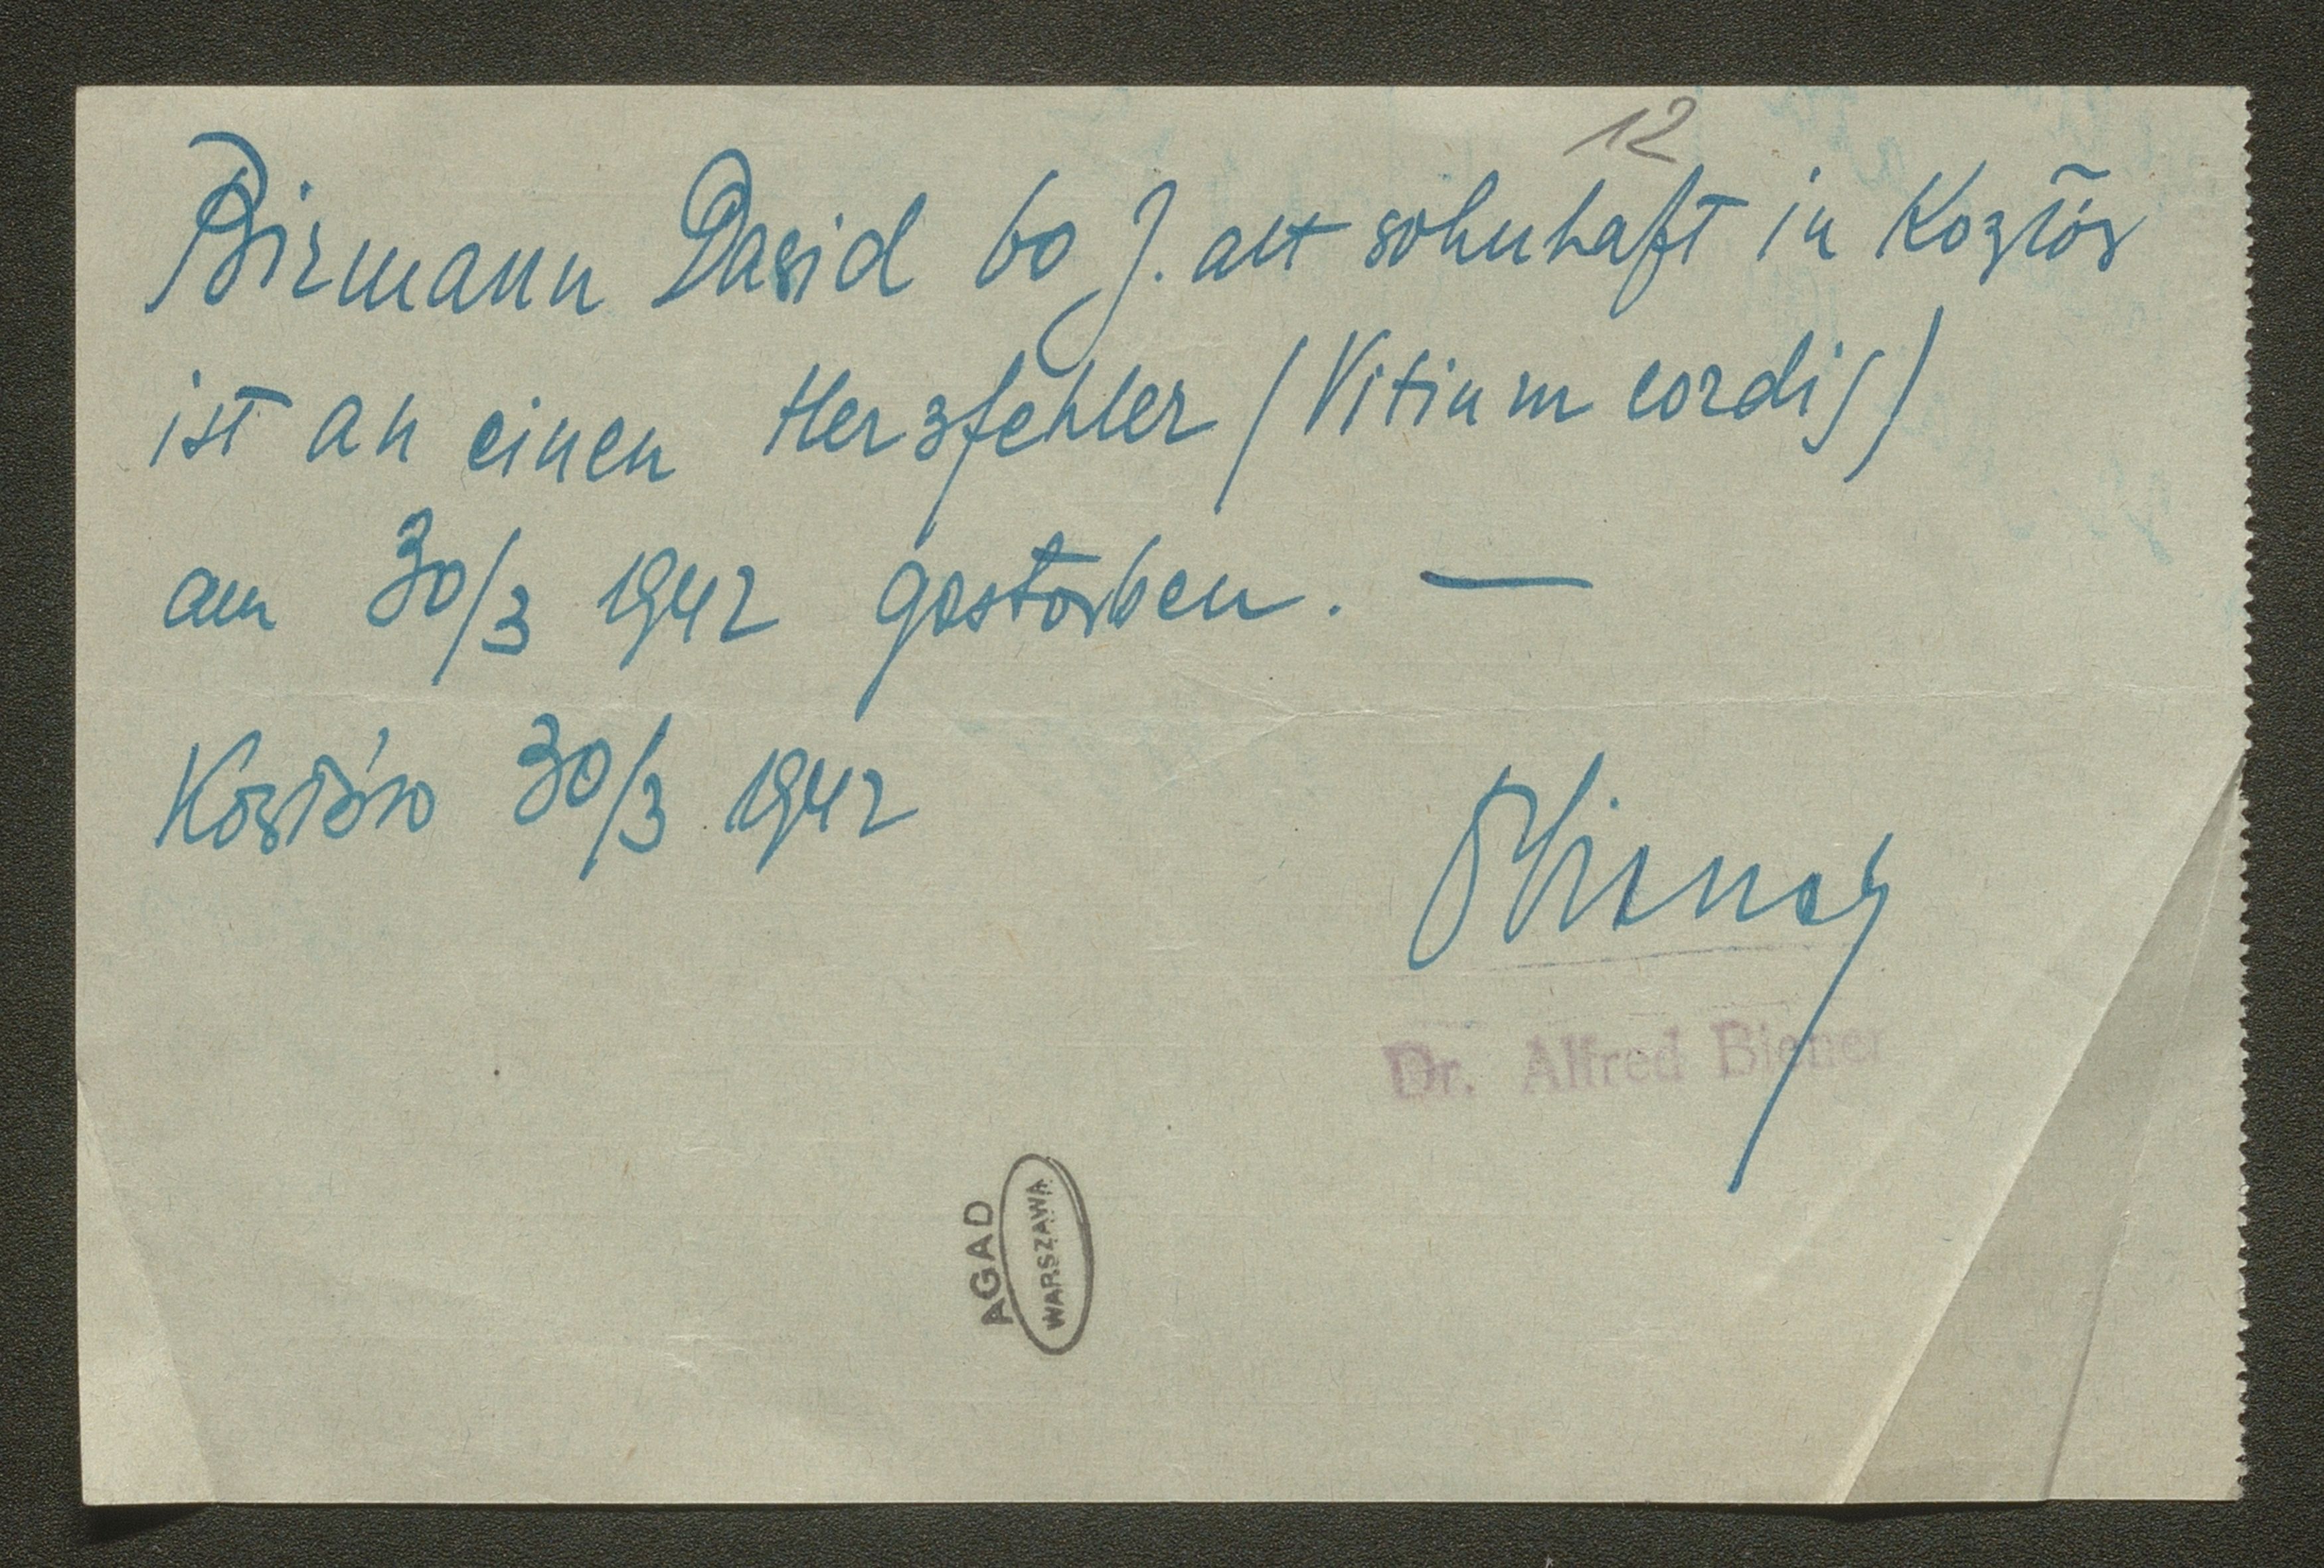 12
Birmann David 60 J. alt wohnhaft in Kozłów
ist an einen Herzfehler /Vitium cordis/
am 30/3 1942 gestorben. —
Kozłów 30/3 1942
Biener
Dr. Alfred Biener
AGAD
WARSZAWA